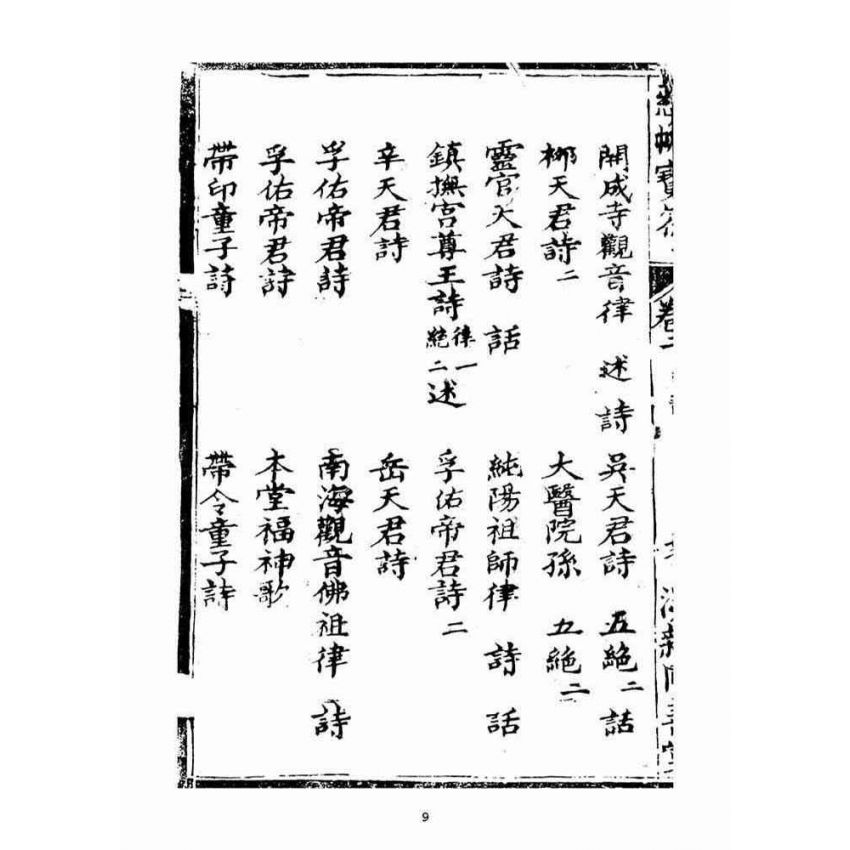 寶筏 卷二
開成寺觀音律 述 詩 吳天君詩 五絕二 話
柳天君詩二 大醫院孫 五絕二
靈官天君詩 話 純陽祖師律 詩 話
鎮撫宮尊王詩 律一絕二 述 孚佑帝君詩二
辛天君詩 岳天君詩
孚佑帝君詩 南海觀音佛祖律 詩
孚佑帝君詩 本堂福神歌
帶印童子詩 帶令童子詩
9